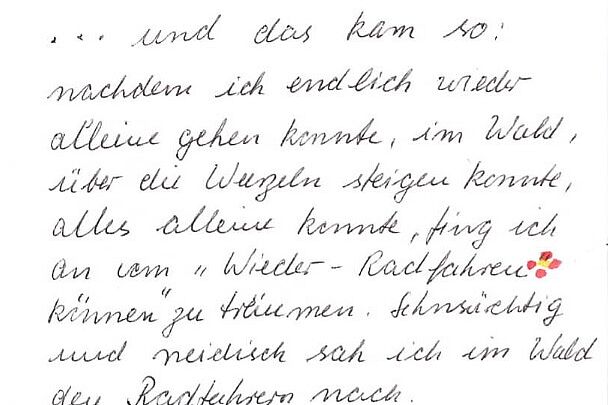 ... und das kam so:
nachdem ich endlich wieder
alleine gehen konnte, im Wald,
über die Wurzeln steigen konnte,
alles alleine konnte, fing ich
an vom „Wieder-Radfahren
können" zu träumen. Sehnsüchtig
und neidisch sah ich im Wald
den Radfahrern nach.